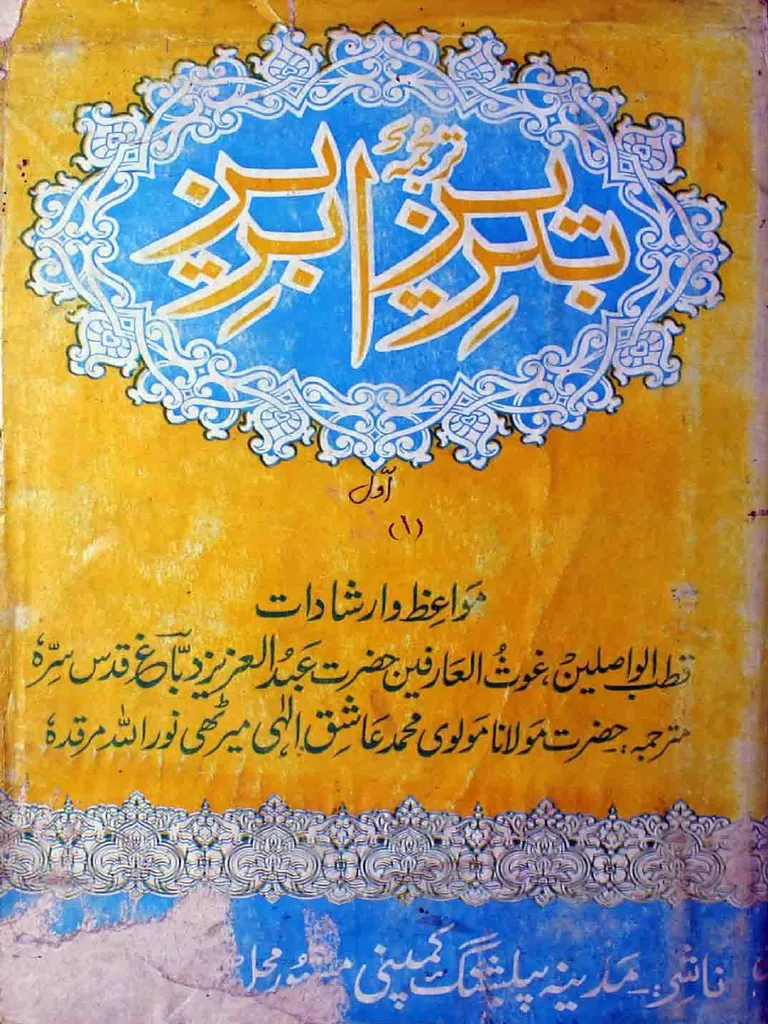 تبریز ترجمۂ ابریز
اوّل
(۱)
مواعظ وارشادات
قطب الواصلین، غوثُ العارفین حضرت عبدُ العزیز دبّاغ قدس سرّہٗ
مترجمہ: حضرت مولانا مولوی محمد عاشق الٰہی میرٹھی نور اللہ مرقدہٗ
ناشر:۔ مدینہ پبلشنگ کمپنی